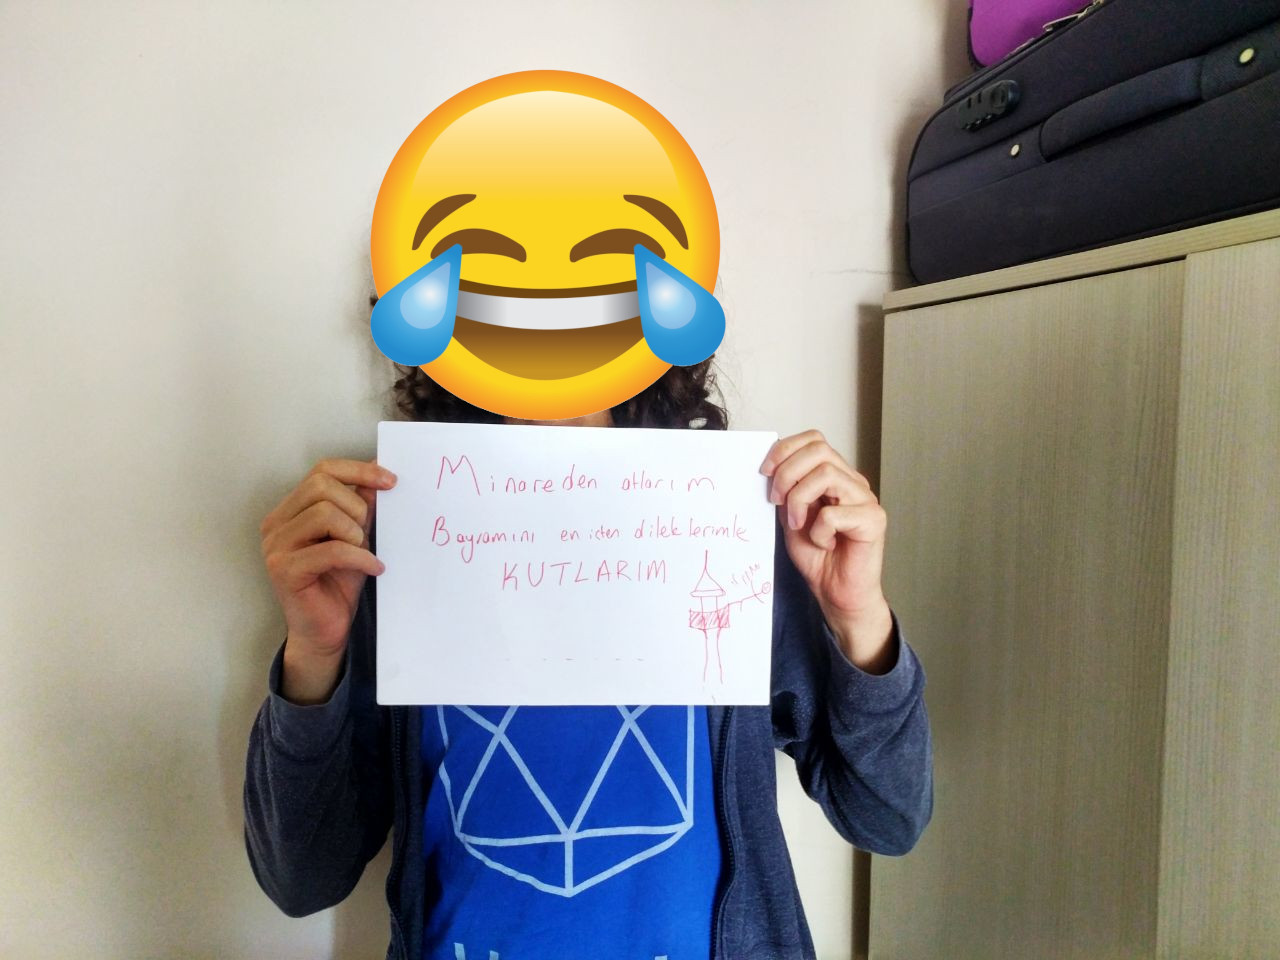 Minareden atlarım
Bayramını en içten dileklerimle
KUTLARIM